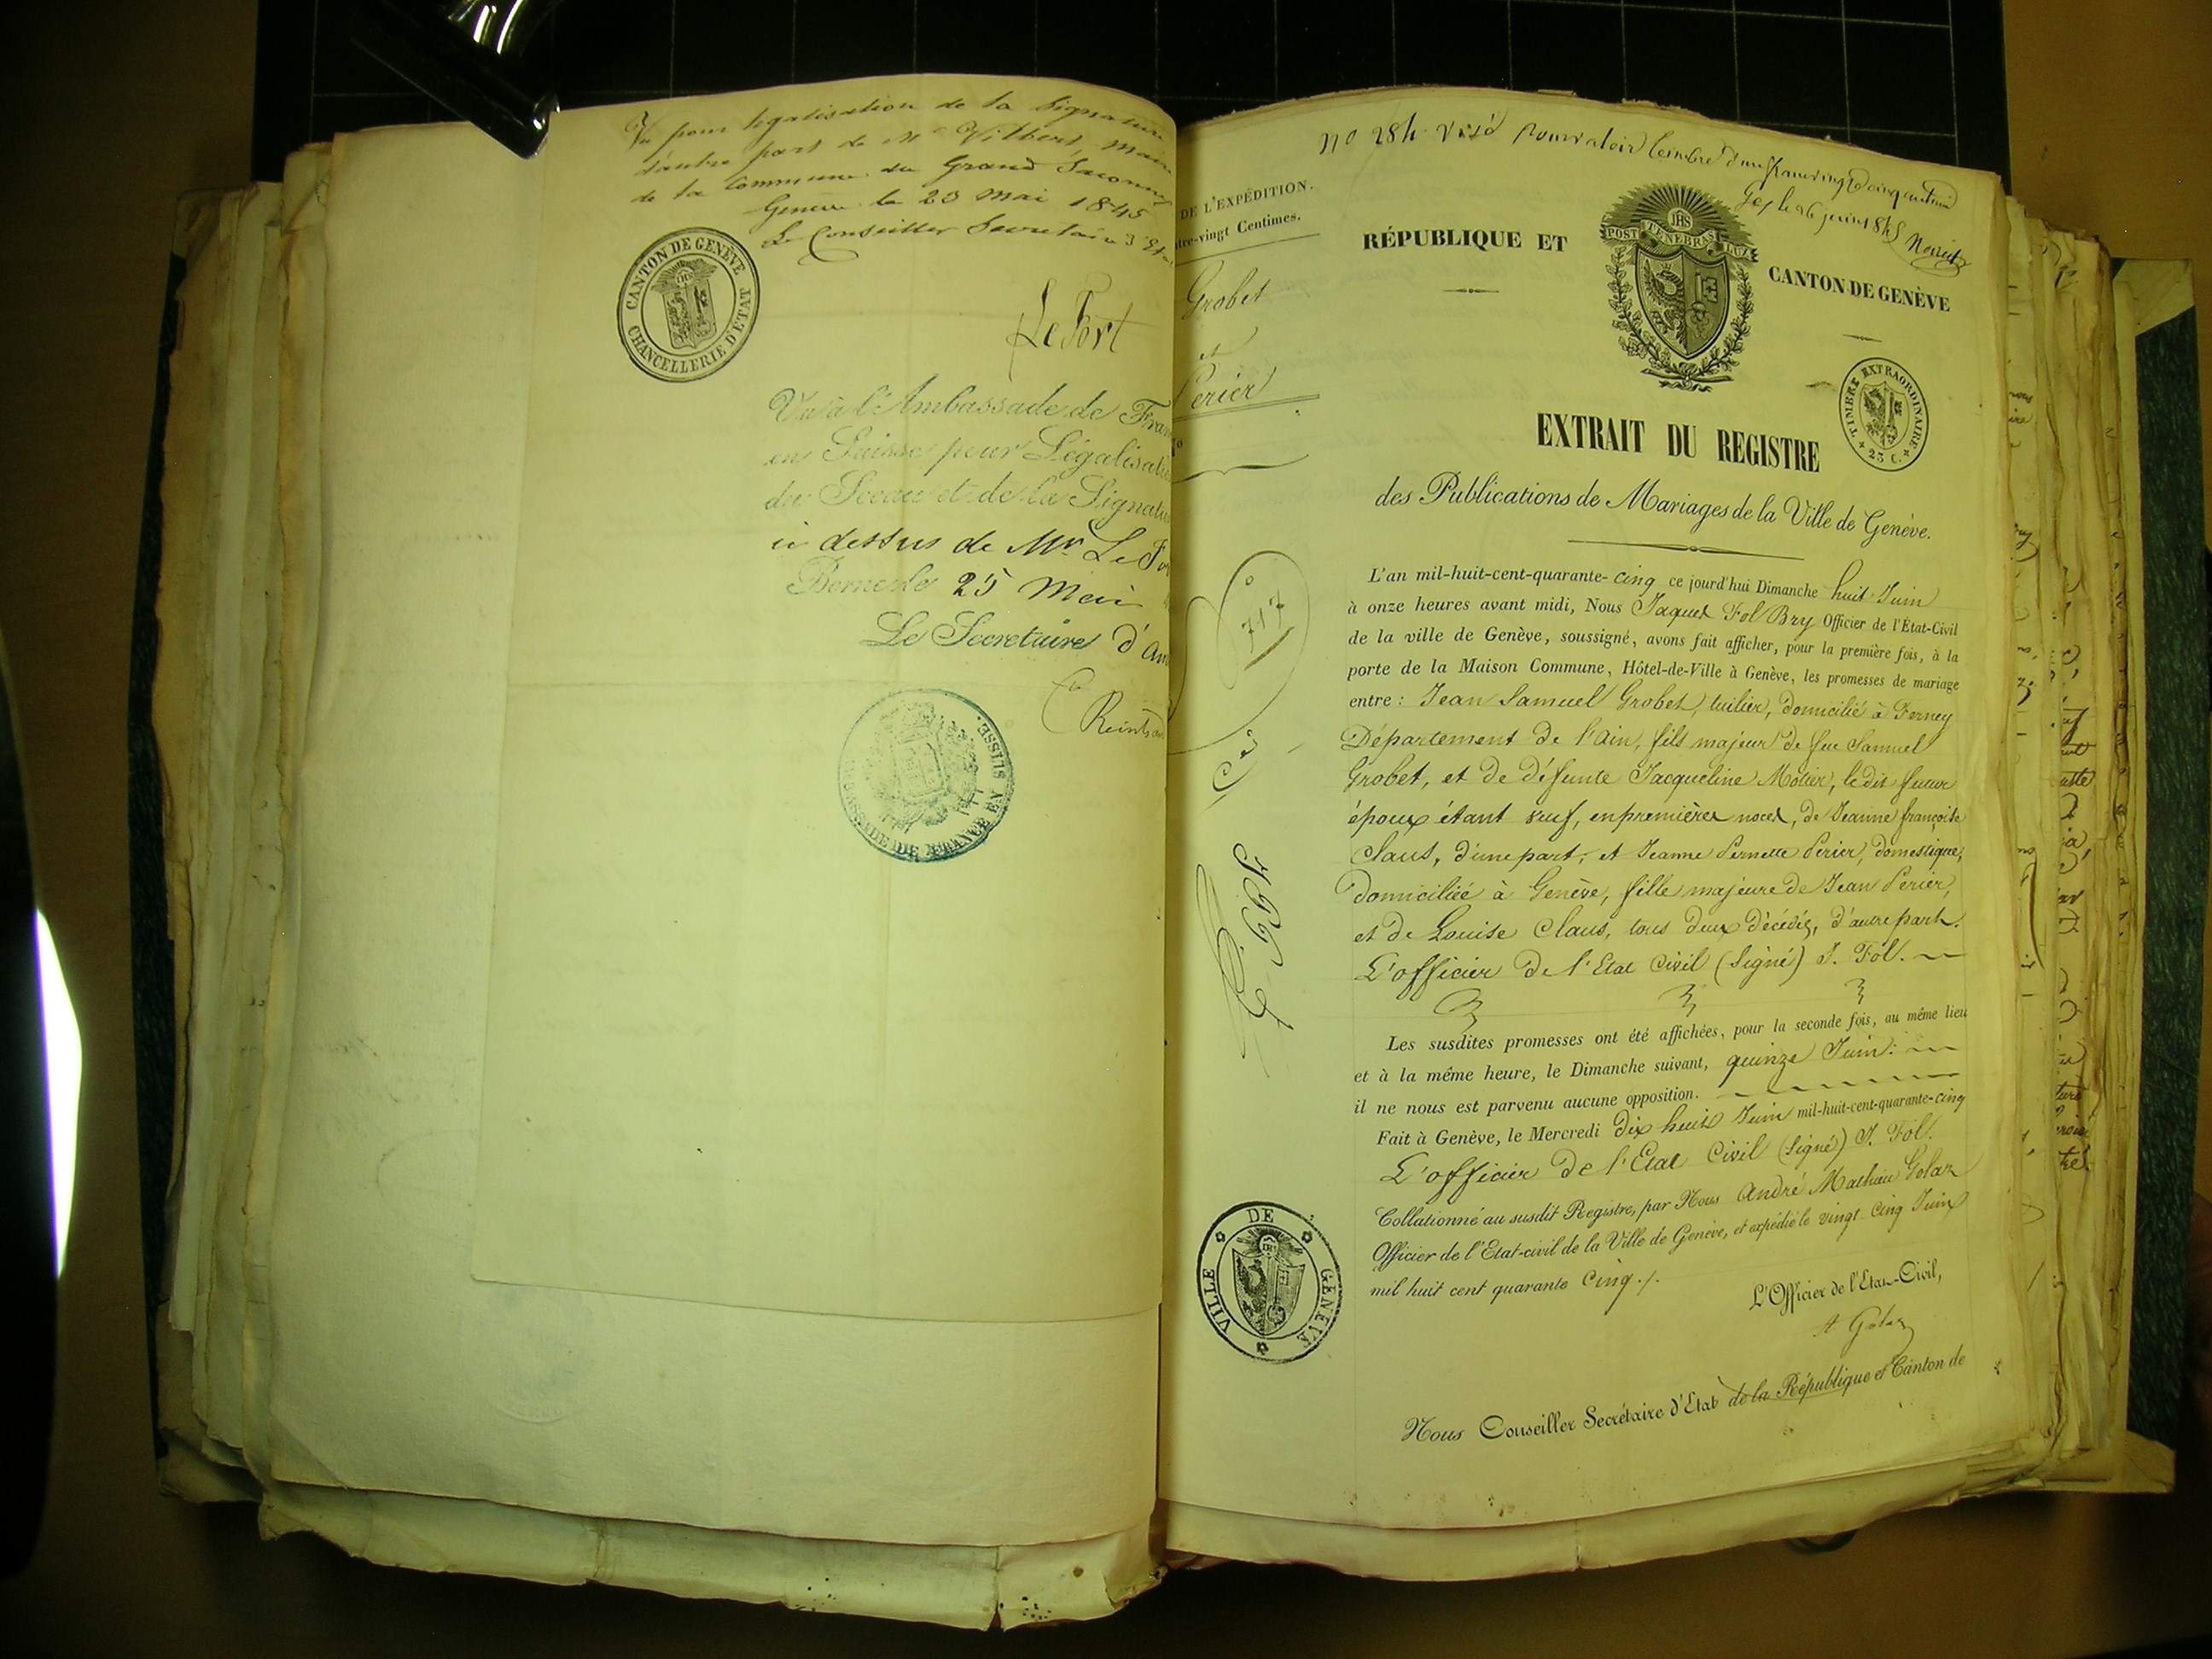 Vu pour légalisation de la Signature
d'autre part de Mr Vilbert, Maire
de la Commune du Grand Saconnex
Genève le 23 Mai 1845
Le Conseiller Secretaire d'Et
CANTON DE GENÈVE
CHANCELLERIE D'ETAT
Le Fort
Vu à l'Ambassade de Fran
en Suisse pour Légalisati
du Sceau et de la Signatu
ci dessus de Mr Le For
Berne le 25 Mai
Le Secretaire d'am
Reinh
AMBASSADE DE FRANCE EN SUISSE.
DE L'EXPÉDITION.
tre-vingt Centimes.
Grobet
et
Perier
717
No 284 Visé pour valoir timbre d'un franc vingt cinq centimes
Gex le 26 juin 1845
RÉPUBLIQUE ET
CANTON DE GENÈVE
IHS
POST TENEBRAS LUX
TIMBRE EXTRAORDINAIRE
25 C.
EXTRAIT DU REGISTRE
des Publications de Mariages de la Ville de Genève.
L'an mil-huit-cent-quarante-cinq ce jourd'hui Dimanche huit Juin
à onze heures avant midi, Nous Jaques Fol Bry Officier de l'État-Civil
de la ville de Genève, soussigné, avons fait afficher, pour la première fois, à la
porte de la Maison Commune, Hôtel-de-Ville à Genève, les promesses de mariage
entre : Jean Samuel Grobet, tuilier, domicilié à Ferney
Département de l'Ain, fils majeur de feu Samuel
Grobet, et de défunte Jacqueline Mottier, le dit futur
époux étant veuf, en premières noces, de Jeanne françoise
Claus, d'une part, et Jeanne Pernette Perier, domestique,
domiciliée à Genève, fille majeure de Jean Perier,
et de Louise Claus, tous deux décédés, d'autre part.
L'officier de l'Etat Civil (signé) J. Fol.
Les susdites promesses ont été affichées, pour la seconde fois, au même lieu
et à la même heure, le Dimanche suivant, quinze Juin :
il ne nous est parvenu aucune opposition.
Fait à Genève, le Mercredi dix huit Juin mil-huit-cent-quarante-cinq
L'officier de l'Etat Civil (signé) J. Fol.
Collationné au susdit Registre, par Nous André Mathieu Golaz
Officier de l'Etat-civil de la Ville de Genève, et expédié le vingt-cinq Juin
mil huit cent quarante cinq ./.
L'Officier de l'Etat-Civil,
A Golaz
VILLE DE GENEVE
Nous Conseiller Secrétaire d'Etat de la République et Canton de